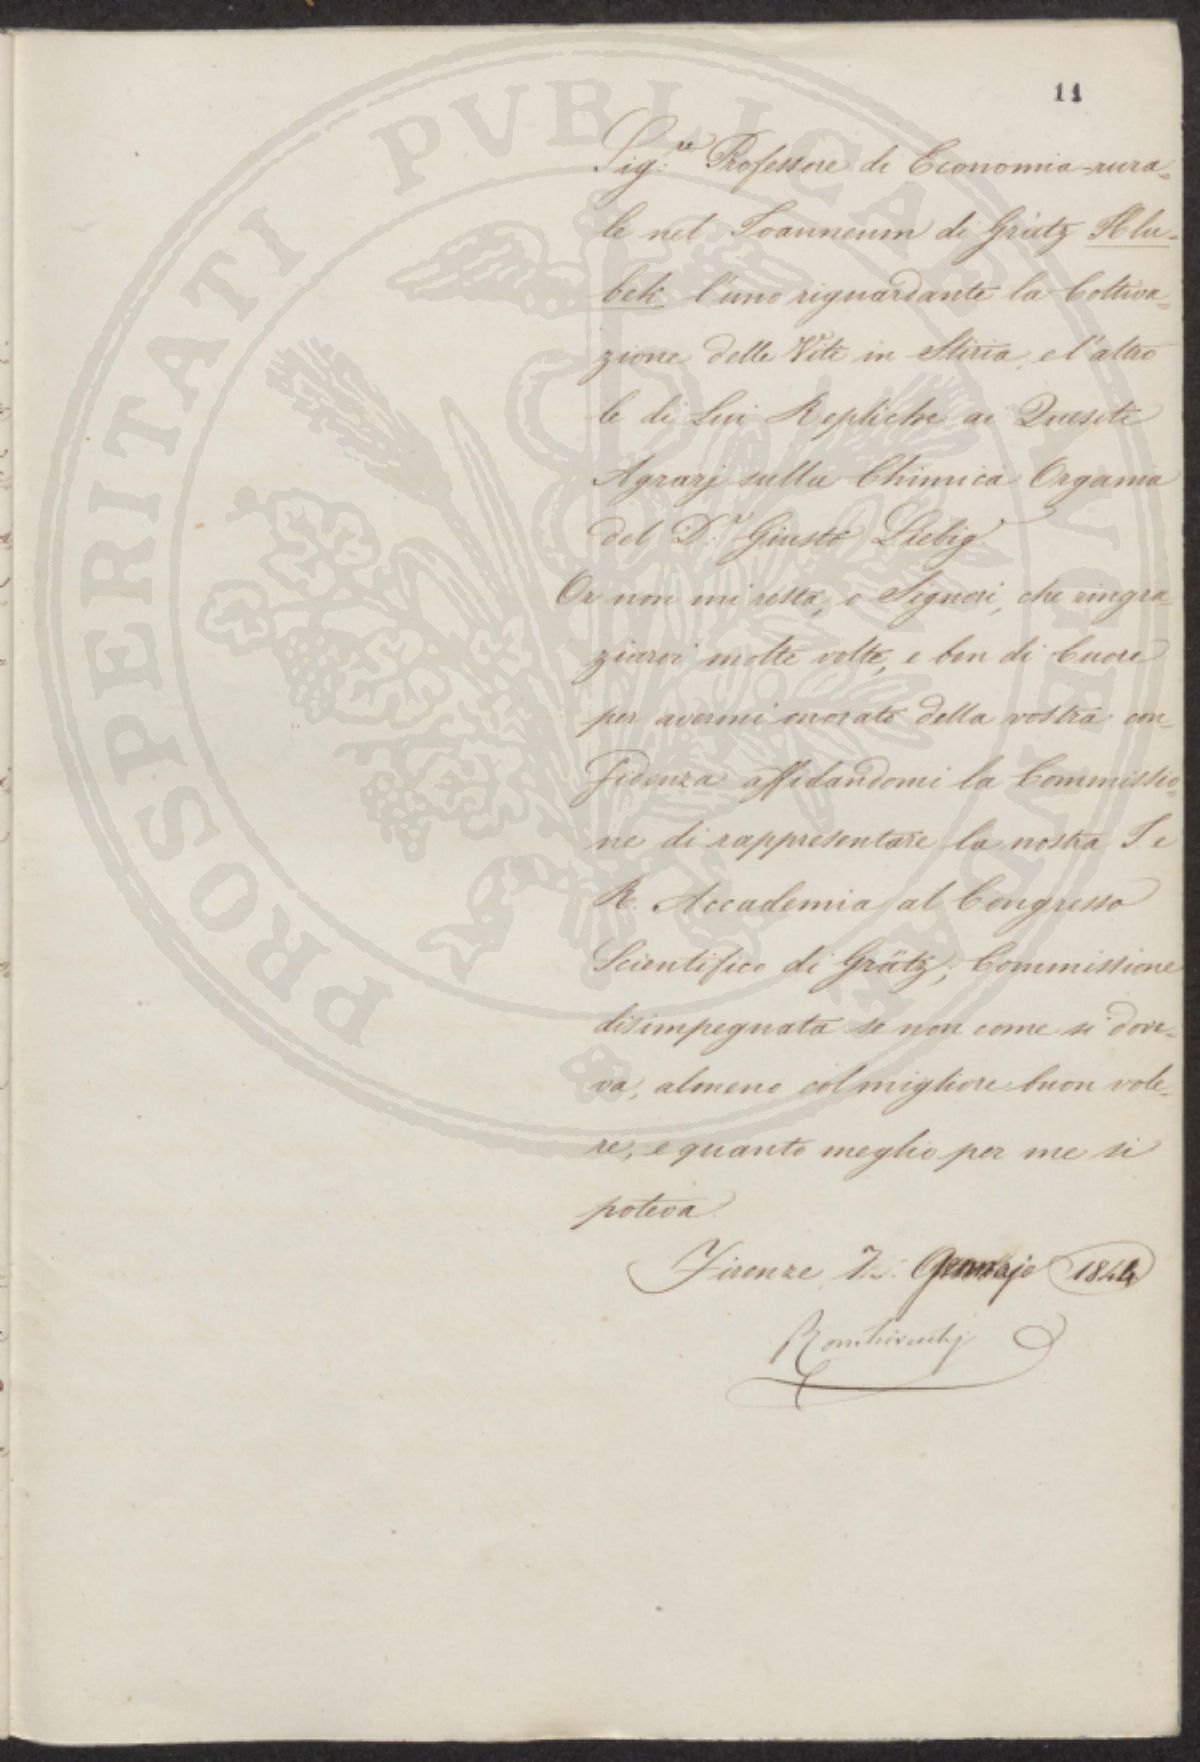 11
Sig.re Professore di Economia-rura-
le nel Joanneum di Grätz Hlu-
bek l'uno riguardante la Coltiva-
zione delle Viti in Stiria, e l'altro
le di Lui Repliche ai Quesiti
Agrarj sulla Chimica Organica
del D.r Giusto Liebig
Or non mi resta, o Signori, che ringra-
ziarvi molte volte, e ben di Cuore
per avermi onorato della vostra con-
fidenza affidandomi la Commissio-
ne di rappresentare la nostra I e
R. Accademia al Congresso
Scientifico di Grätz; Commissione
disimpegnata se non come si dove-
va, almeno col migliore buon vole-
re, e quanto meglio per me si
poteva.
Firenze 7 Gennajo 1844
PROSPERITATI PVBLICAE AVGENDAE